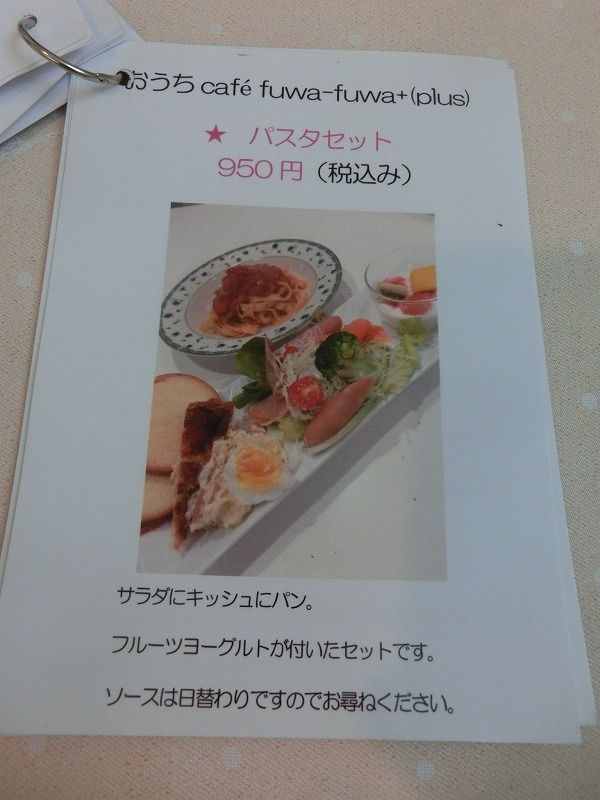 おうち café fuwa-fuwa+(plus)
★ パスタセット
950円（税込み）
サラダにキッシュにパン。
フルーツヨーグルトが付いたセットです。
ソースは日替わりですのでお尋ねください。